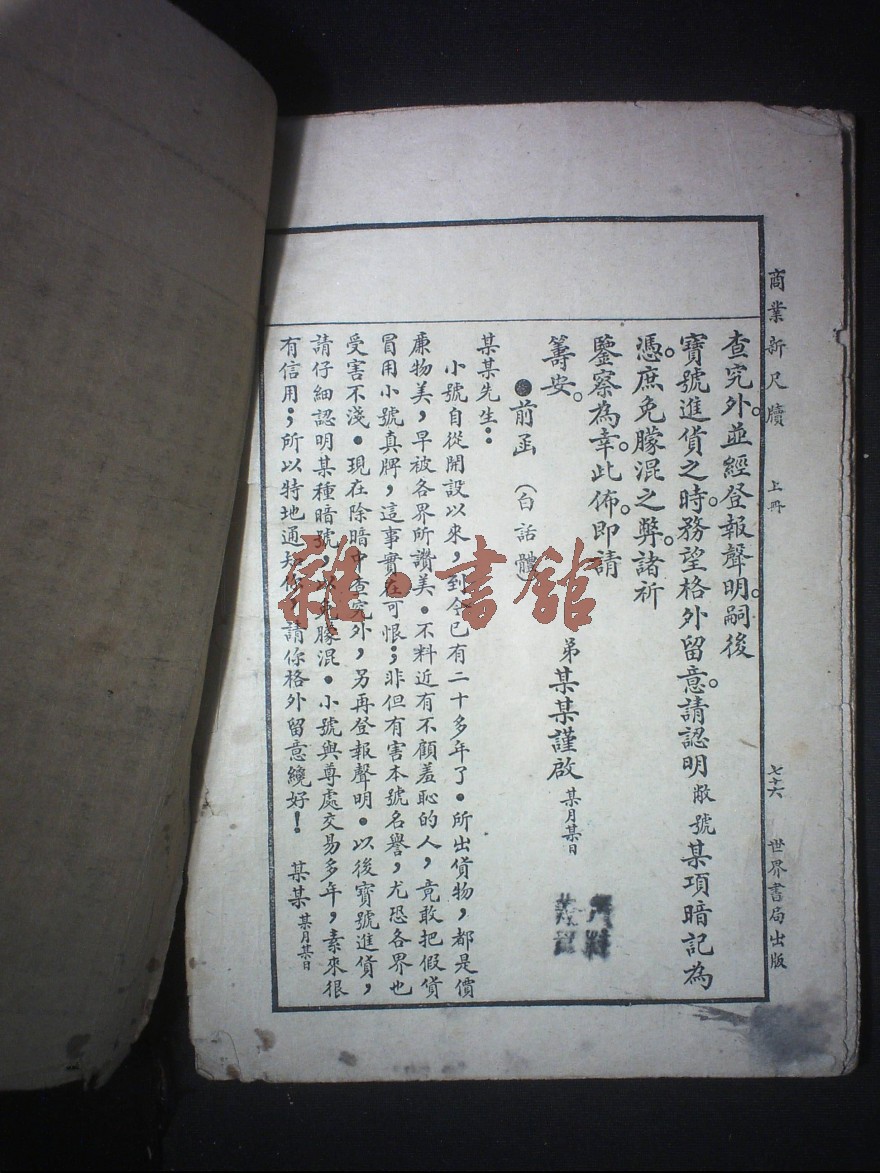 商業新尺牘 上冊 七十六 世界書局出版
查究外。並經登報聲明。嗣後
寶號進貨之時。務望格外留意。請認明敝號某項暗記為
憑。庶免朦混之弊。諸祈
鑒察為幸。此佈。即請
籌安。 弟某某謹啟 某月某日
前函 (白話體)
某某先生：
小號自從開設以來，到今已有二十多年了。所出貨物，都是價
廉物美，早被各界所讚美。不料近有不顧羞恥的人，竟敢把假貨
冒用小號真牌，這事實在可恨；非但有害本號名譽，尤恐各界也
受害不淺。現在除暗中查究外，另再登報聲明。以後寶號進貨，
請仔細認明某種暗號，以免朦混。小號與尊處交易多年，素來很
有信用；所以特地通知你，請你格外留意纔好！ 某某 某月某日
雜·書館